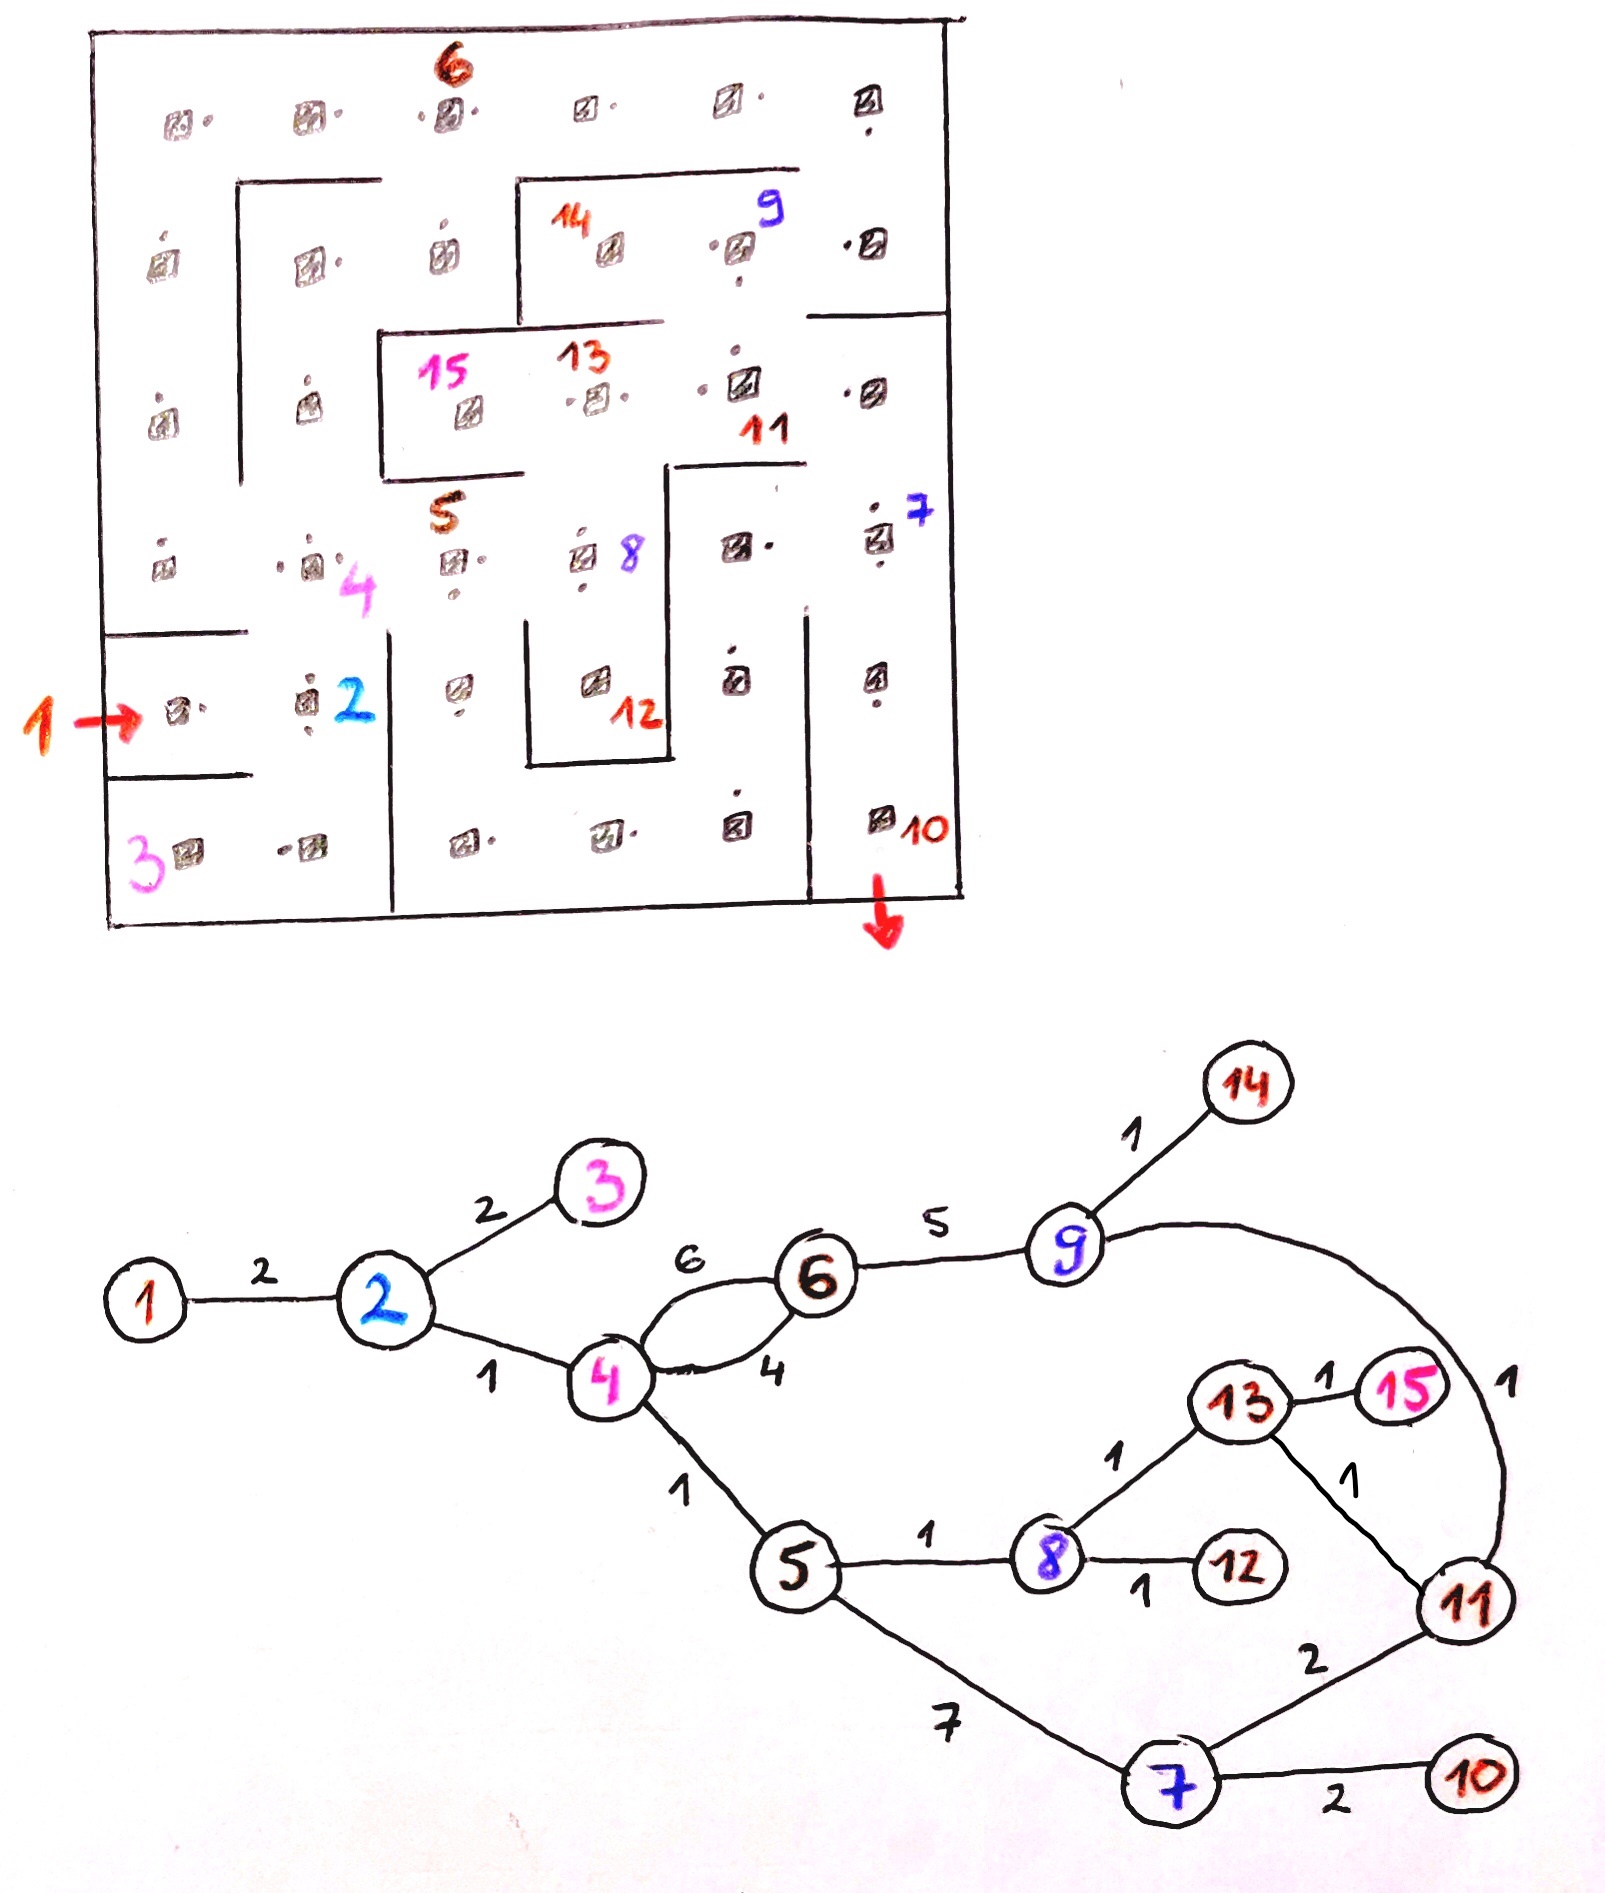 6
14 9
15 13
11
5 7
4 8
1 2 12
3 10
14
1
3
2 5
6 9
1 2 2 6
4 13 1 15 1
1 4
1 1
1 1
5 8 12
1 11
2
7
7 10
2